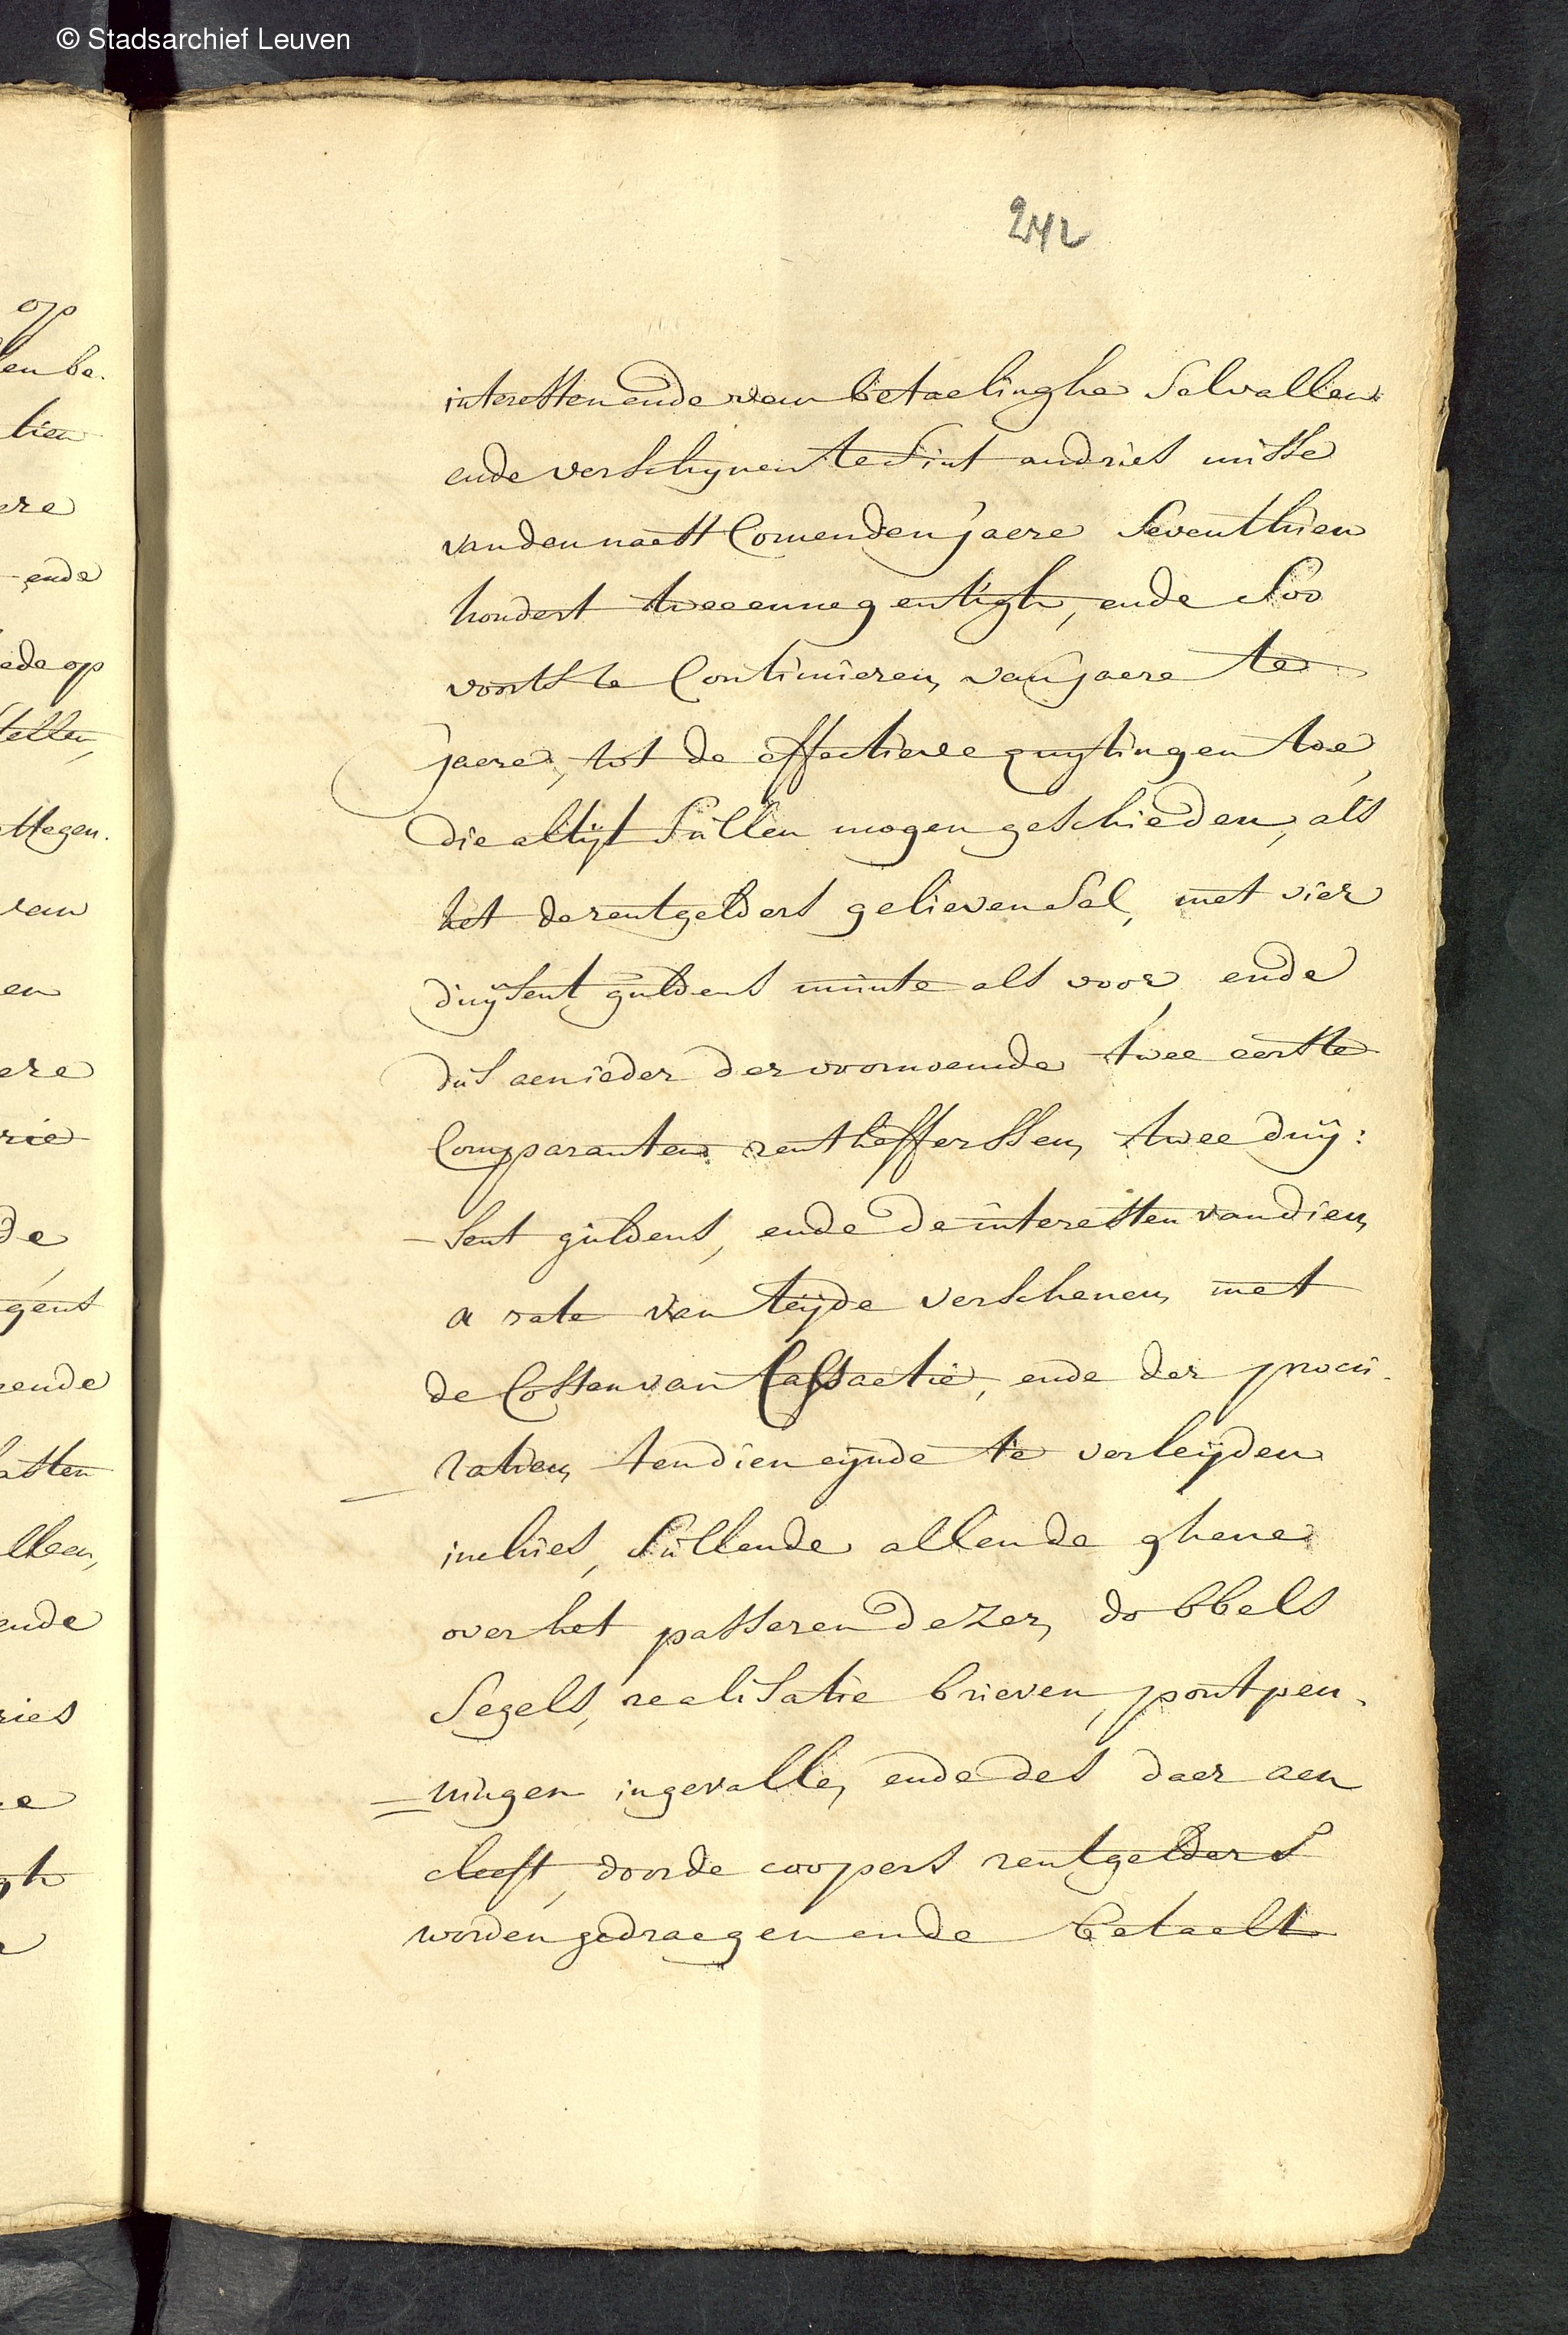 © Stadsarchief Leuven
242
interesten ende van betaelinghe sal vallen
ende verschynen te sint andries misse
van den naest comenden jaere seventhien
hondert tweeennegentigh, ende soo
voorts te continuieren, van jaere te
jaere, tot de effectieve quytingen toe,
die altijt sullen mogen geschieden, als
het de rentgelders gelieven sal, met vier
duijsent guldens munte als voor, ende
dus aen ieder der voornoemde twee eerste
comparanten rentheffersssen, twee duij:
- sent guldens, ende de interesten van dien,
a rate van teijde verschenen, met
de costen van cassaetie, ende der procu-
ratien, ten dien eijnde te verleijden
incluis, sullende allen de ghene
over het passeren dezer, dobbels
segels, realisatie brieven, pontpen-
= ningen ingevalle, ende des daer aen
cleeft, door de coopers rentgelders
worden gedraegen ende betaelt
op
en be.
tien
ere
ende
ede op
stellen,
van
en
ere
rie
de,
gens
ende
sten
ende
ries
e
gh